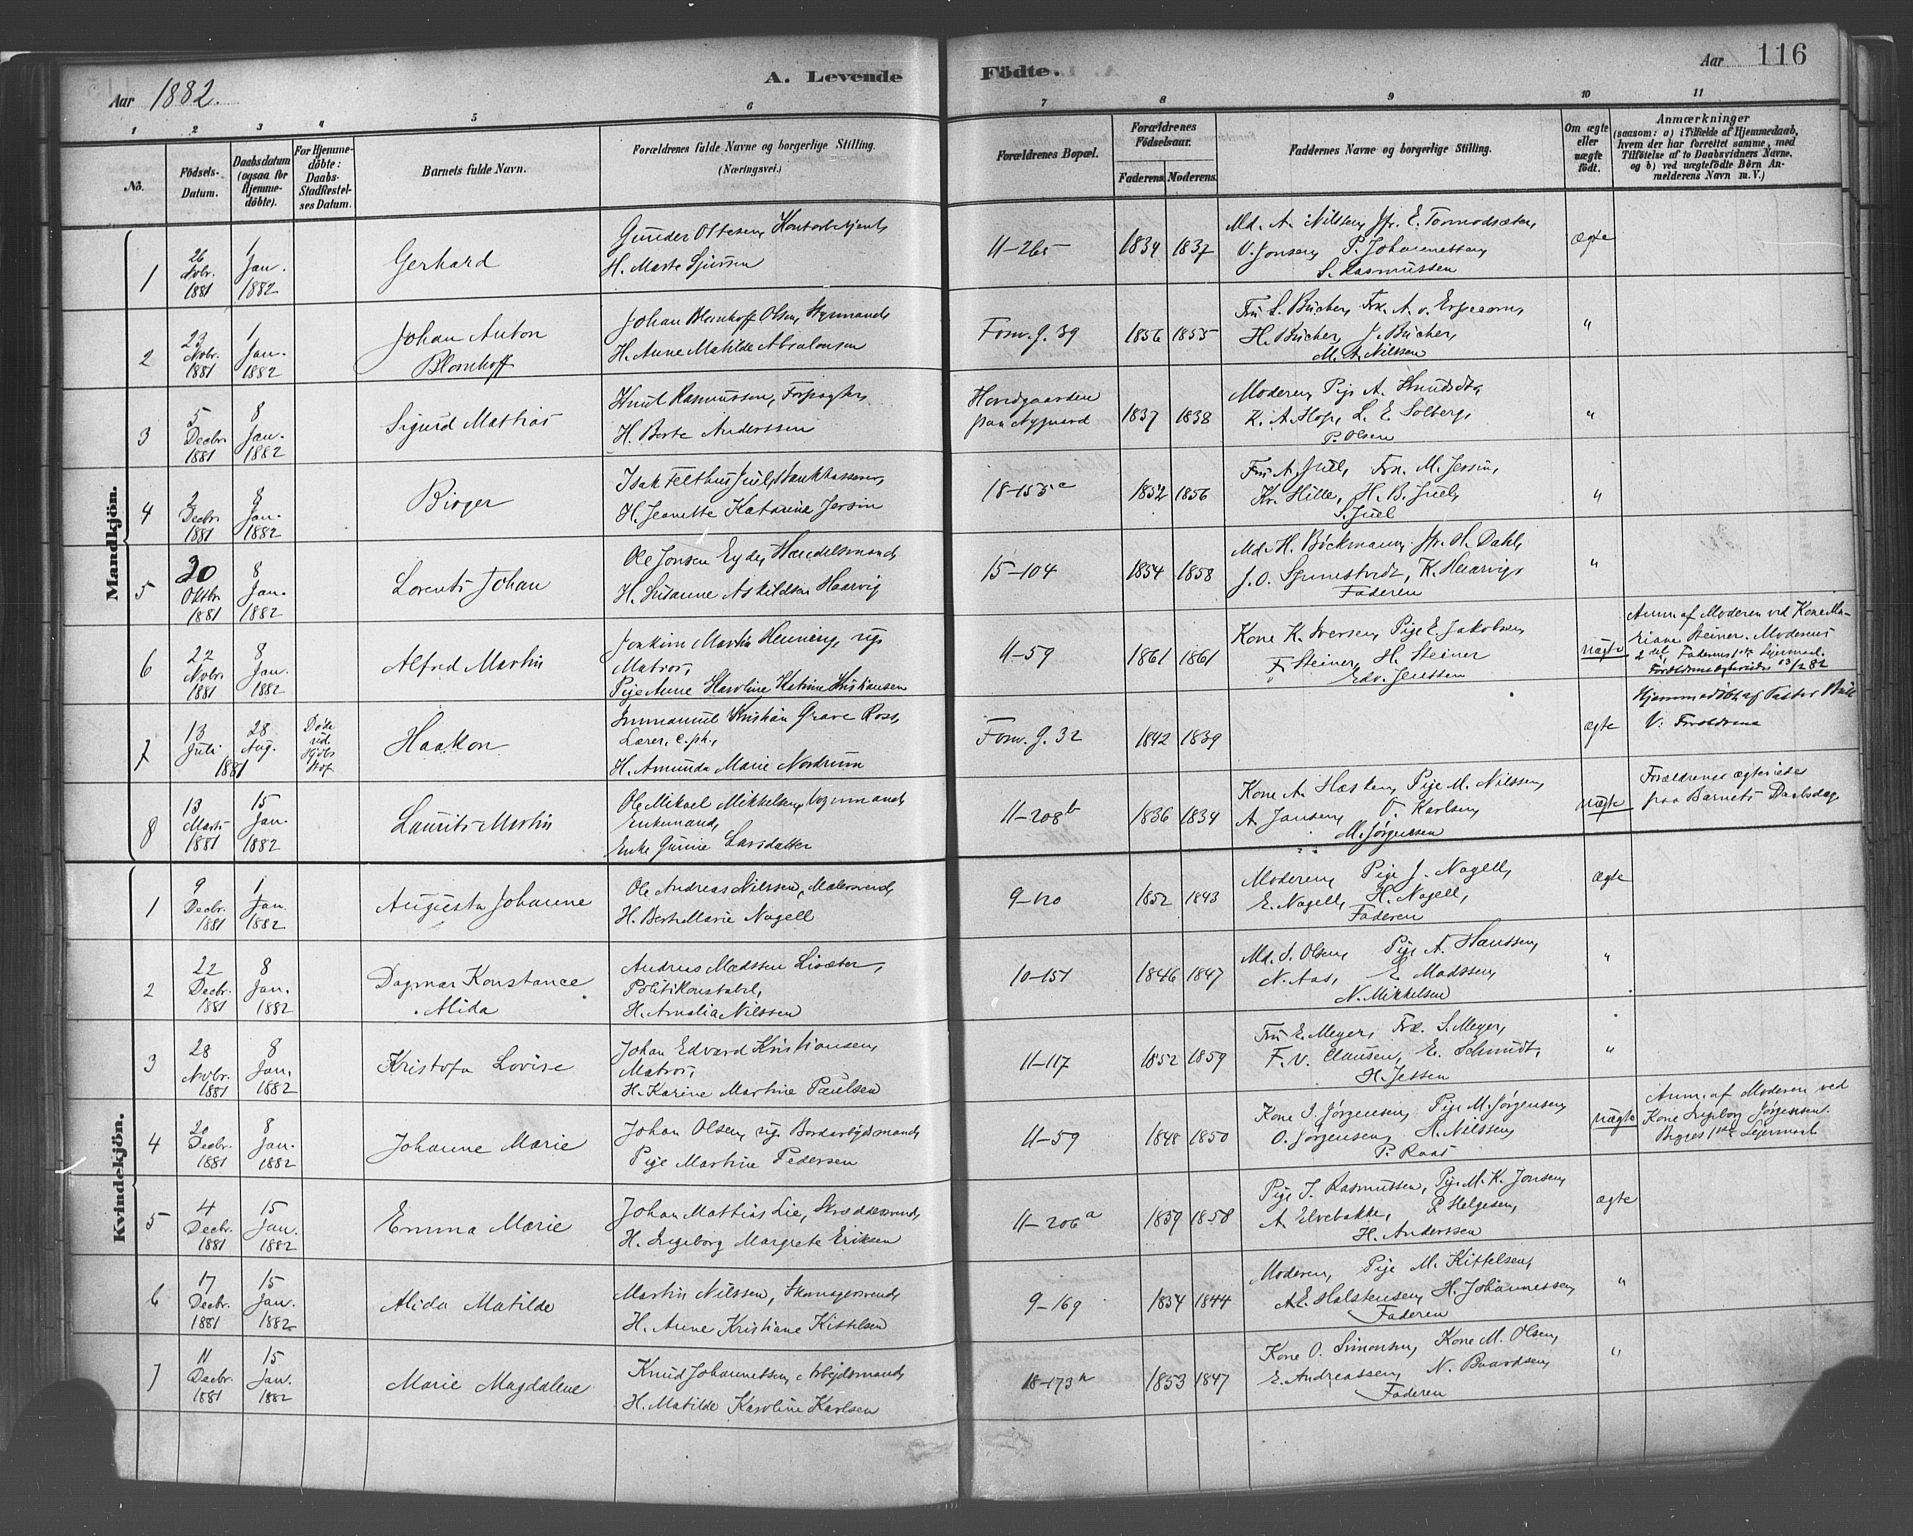 Aar 1882.
A. Levende Födte.
Aar 116
1 2 3 4 5 6 7 8 9 10 11
No.
Födsels-Datum.
Daabsdatum (ogsaa for Hjemmedöbte).
For Hjemmedöbte: Daabs-Stadfæstelses Datum.
Barnets fulde Navn.
Forældrenes fulde Navne og borgerlige Stilling. (Næringsvei.)
Forældrenes Bopæl.
Forældrenes Födselsaar.
Faderens Moderens
Faddernes Navne og borgerlige Stilling.
Om ægte eller uægte födt.
Anmærkninger
(saasom: a) i Tilfælde af Hjemmedaab, hvem der har forrettet samme, med Tilföielse af to Daabsvidners Navne, og b) ved uægtefödte Börn Anmelderens Navn m. V.)
Mandkjön.
1 26 Novbr. 1881 1 Jan. 1882 Gerhard
Gunder Ottesen, Kontorbetjent,
H. Marte Sjursen
11-265 1834 1837
Md. A. Nilssen, Jfr. E. Tormodsæter,
V. Jonsen, P. Johannessen,
S. Rasmussen
ægte
2 23 Novbr. 1881 1 Jan. 1882 Johan Anton
Blomhoff
Johan Blomhoff Olsen, Styrmand,
H. Anne Matilde Absalonsen
Fomv. g. 39 1856 1855
Fru S. Bücher, Frk. A. v.
H. Bücher, J. Bücher,
M. A. Nilssen
"
3 5 Decbr. 1881 8 Jan. 1882 Sigurd Mattias
Knut Rasmussen, Forpagter,
H. Berte Anderssen
Hovedgaarden
paa Nygaard
1837 1838
Moderen, Pige A. Knudsdt.,
K. A. Hop, L. E. Solberg,
P. Olsen
"
4 2 Decbr. 1881 8 Jan. 1882 Birger
Isak Felthus Juul, Bankkasserer,
H. Jeanette Katarine Jersin
18-155c 1852 1856
Fru A. Juel, Frk. M. Jersin,
Kr. Hille, H. B. Juel,
S. Juel
"
5 30 Oktbr. 1881 8 Jan. 1882 Lorents Johan
Ole Jonsen Eyde, Handelsmand,
H. Susanne Askildsen Haarvig
15-104 1854 1858
Md. H. Böckmann, Jfr. H. Dahl,
J. O. K. Haarvig,
Faderen
"
6 22 Novbr. 1881 8 Jan. 1882 Alfred Martin
Joakim Martin Henning, ug.
Matros,
Pige Anne Karoline Katrine Kristiansen
11-59 1861 1861
Kone K. Iversen, Pige E. Jakobsen,
F. Steiner, H. Steiner
Edv. Jenssen
uægte
Anm. af Moderen ved Kone Ma-
riane Steiner. Moderens
2det, Faderens 1ste Lejermaal.
13/2 82
7 13 Juli 28 Aug. 1881
Haakon
Immanuel Kristian Grave Ross,
Lærer, c. ph.,
H. Amunda Marie Nordrum
Fomv. g. 32 1842 1839
ægte
Hjemmedöbt af Pastor
V: Foreldrene
8 13 Marts 1881 15 Jan. 1882 Laurits Martin
Ole Mikael Mikkelsen, Vognmand,
Enkemand,
Enke Gurine Larsdatter
11-208b 1836 1834
Kone A. Hæsten, Pige M. Nilssen,
A. Jansen, O. Karlsen,
M. Jörgensen
uægte
Forældrene ægteviede
paa Barnets Daabsdag
Kvindekjön.
1 9 Decbr. 1881 1 Jan. 1882 Augusta Johanne
Ole Andreas Nilssen, Malersvend,
H. Berte Marie Nagell
9-120 1852 1843
Moderen, Pige J. Nagell,
E. Nagell, H. Nagell,
Faderen
ægte
2 22 Decbr. 1881 8 Jan. 1882 Dagmar Konstance
Alida
Andreas Madssen Lisæter,
Politikonstabel,
H. Amalia Nilssen
10-151 1846 1847
Md. S. Olsen, Pige A. Hanssen,
N. Aas, E. Madssen,
N. Mikkelsen
"
3 28 Novbr. 1881 8 Jan. 1882 Kristofa Lovise
Johan Edvard Kristiansen,
Matros,
H. Karine Martine Paulsen
11-117 1852 1859
Fru E. Meyer, Frk. S. Meyer,
F. V. Clausen, E. Schmidt,
H. Jessen
"
4 20 Decbr. 1881 8 Jan. 1882 Johanne Marie
Johan Olsen, ug. Bordarbejdsmand,
Pige Martine Pedersen
11-59 1848 1850
Kone I. Jörgensen, Pige M. Jörgensen,
O. Jörgensen, H. Nilssen,
P. Raas
uægte
Anm. af Moderen ved
Kone Ingeborg Jörgensen.
Begges 1ste Lejermaal
5 4 Decbr. 1881 15 Jan. 1882 Emma Marie
Johan Mattias Lie, Skræddersvend,
H. Ingeborg Margrete Eriksen
11-206a 1859 1858
Pige S. Rasmussen, Pige M. K. Jonsen,
A. Elvebakke, P. Helgesen,
H. Anderssen
ægte
6 17 Decbr. 1881 15 Jan. 1882 Alida Matilde
Martin Nilssen, Skomagersvend,
H. Anne Kristiane Kittelsen
9-169 1854 1844
Moderen, Pige M. Kittelsen,
A. E. Halstensen, H. Johannessen,
Faderen
"
7 11 Decbr. 1881 15 Jan. 1882 Marie Magdalene
Knud Johannessen, Arbejdsmand,
H. Matilde Karoline Karlsen
18-173a 1853 1847
Kone O. Simonsen, Kone M. Olsen,
E. Andreassen, N. Baardsen,
Faderen
"